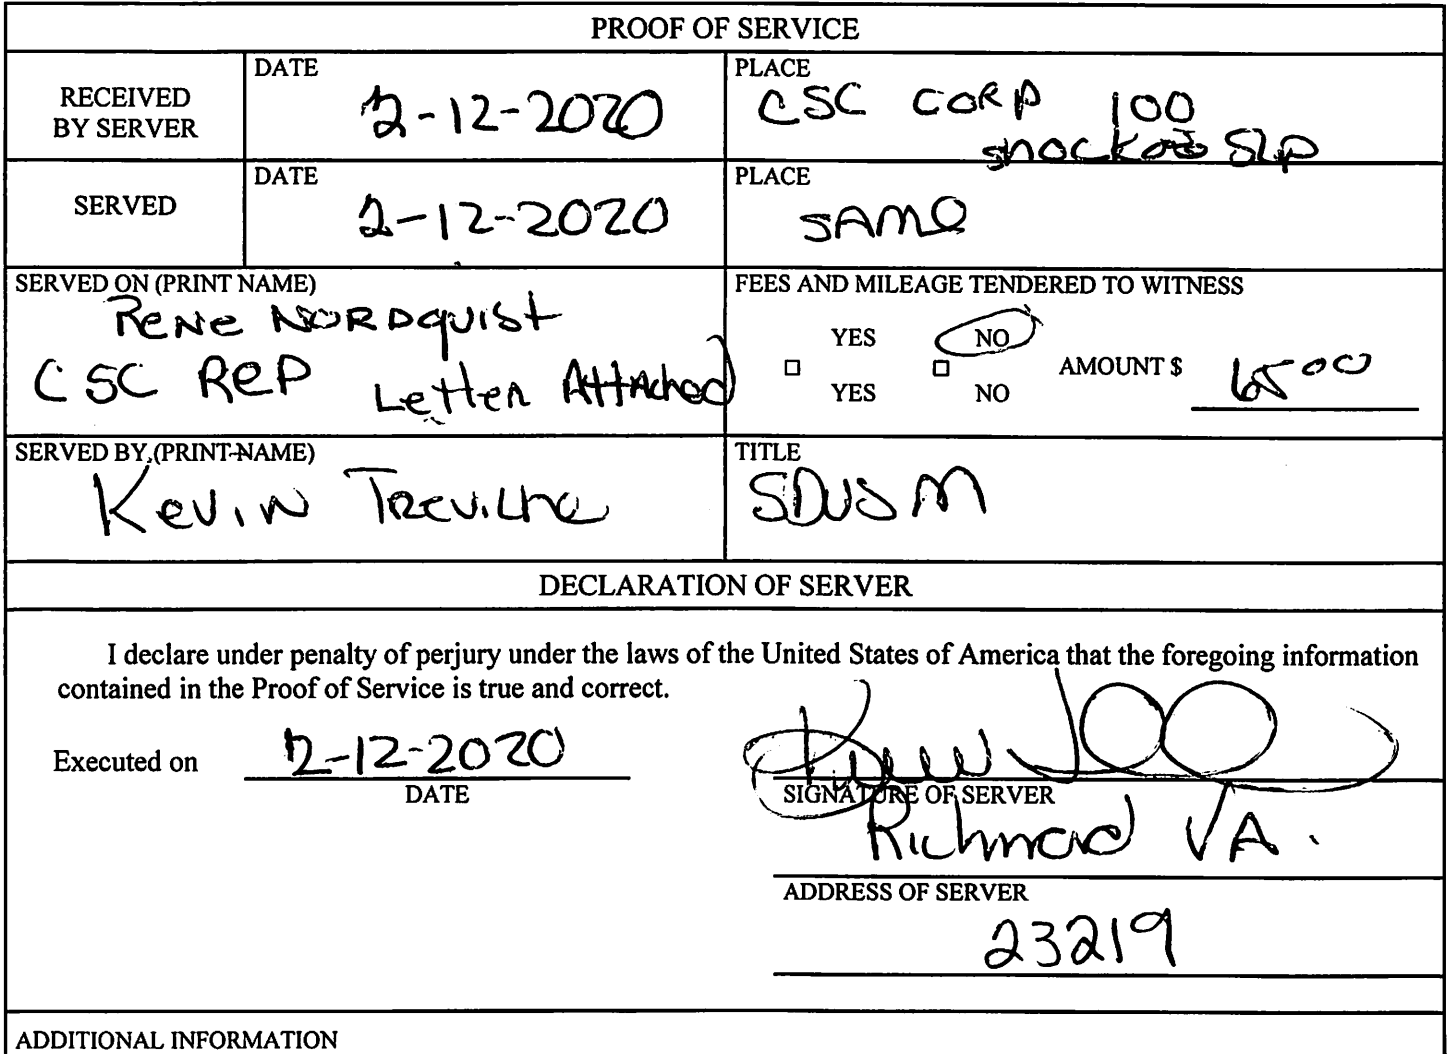 PROOF OF SERVICE
RECEIVED
BY SERVER
DATE
2-12-2020
PLACE
CSC CORP 100
Shockoe SLP
SERVED
DATE
2-12-2020
PLACE
SAME
SERVED ON (PRINT NAME)
Rene NORDquist
CSC Rep Letter Attached
FEES AND MILEAGE TENDERED TO WITNESS
YES NO
☐ ☐ AMOUNT $ 6500
YES NO
SERVED BY (PRINT NAME)
Kevin
TITLE
SDUSM
DECLARATION OF SERVER
I declare under penalty of perjury under the laws of the United States of America that the foregoing information
contained in the Proof of Service is true and correct.
Executed on 2-12-2020
DATE
SIGNATURE OF SERVER
Richmond VA.
ADDRESS OF SERVER
23219
ADDITIONAL INFORMATION